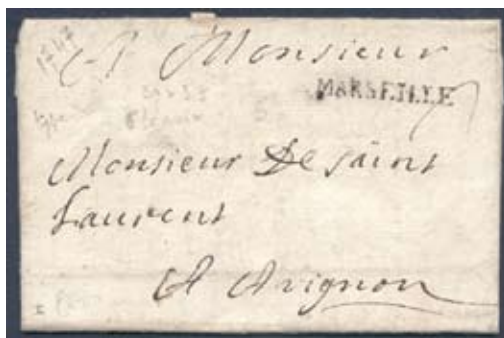 1747
A Monsieur
MARSEILLE
Monsieur De saint
Laurent
A Avignon